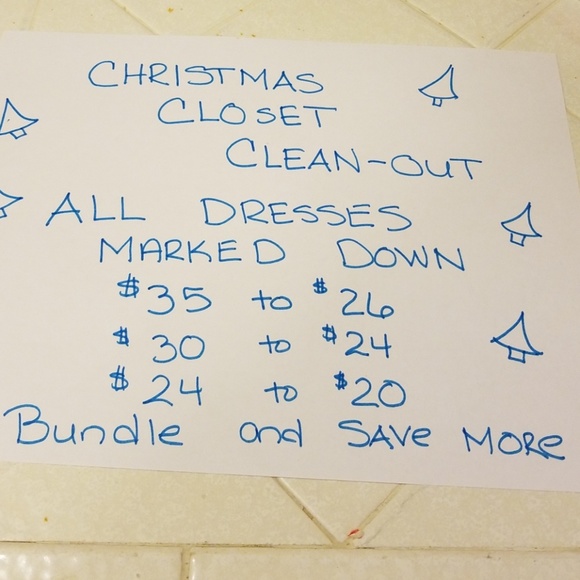 CHRISTMAS
CLOSET
CLEAN-OUT
ALL DRESSES
MARKED DOWN
$35 to $26
$30 to $24
$24 to $20
Bundle and SAVE MORE